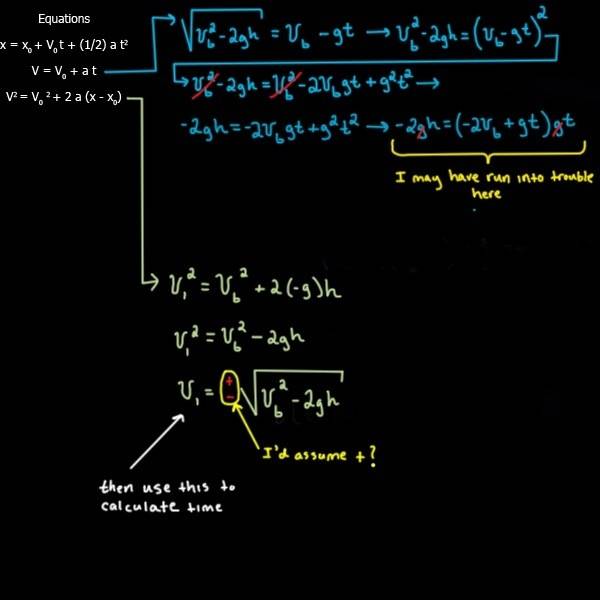 Equations
x = x₀ + V₀t + (1/2) a t²
V = V₀ + a t
V² = V₀² + 2 a (x - x₀)
√(v_b² - 2gh) = v_b - gt → v_b² - 2gh = (v_b - gt)²
↳ v_b² - 2gh = v_b² - 2v_b gt + g²t² →
-2gh = -2v_b gt + g²t² → -2gh = (-2v_b + gt)gt
I may have run into trouble
here
→ v₁² = v_b² + 2(-g)h
v₁² = v_b² - 2gh
v₁ = ± √(v_b² - 2gh)
I'd assume +?
then use this to
calculate time